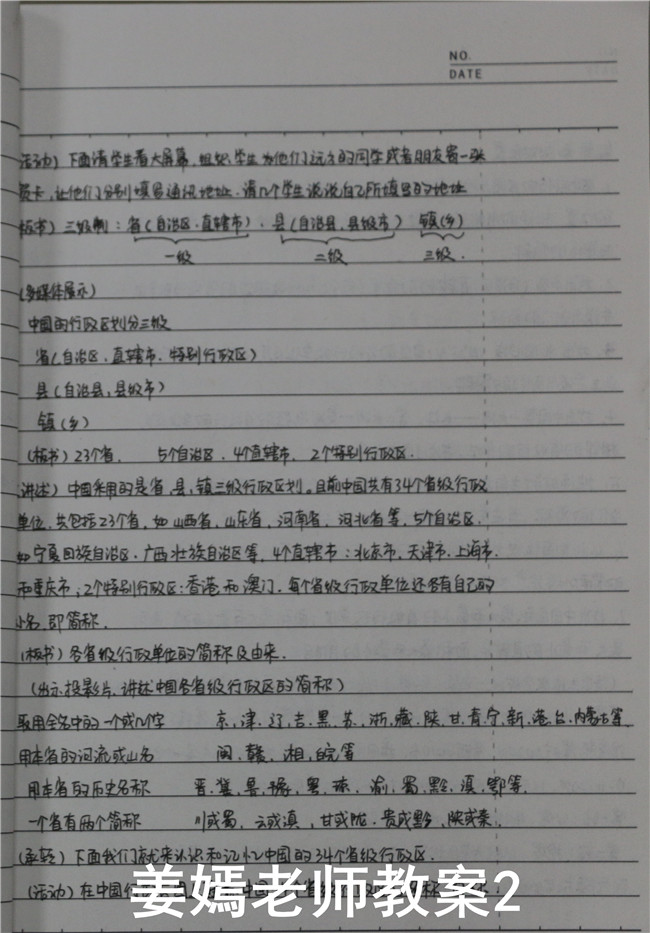 NO.
DATE
(活动) 下面请学生看大屏幕,组织学生为他们远方的同学或者朋友寄一张
贺卡,让他们分别填写通讯地址.请几个学生说说自己所填写的地址
(板书) 三级制:省(自治区.直辖市).县(自治县.县级市) 镇(乡)
一级 二级 三级.
(多媒体展示)
中国的行政区划分三级
省(自治区.直辖市.特别行政区)
县(自治县,县级市)
镇(乡)
(板书) 23个省. 5个自治区.4个直辖市.2个特别行政区.
(讲述) 中国采用的是省.县.镇三级行政区划。目前中国共有34个省级行政
单位.共包括23个省,如山西省,山东省,河南省.河北省等,5个自治区.
如宁夏回族自治区.广西壮族自治区等,4个直辖市:北京市.天津市.上海市.
和重庆市;2个特别行政区:香港和澳门.每个省级行政单位还各有自己的
小名,即简称.
(板书) 各省级行政单位的简称及由来.
(出示投影片.讲述中国各省级行政区的简称)
取用全名中的一个或几个字 京.津.辽.吉.黑.苏.浙.藏.陕.甘.青.宁.新.港.台.内蒙古等
用本省的河流或山名 闽.赣.湘.皖等
用本省的历史名称 晋.冀.鲁.豫.粤.琼.渝.蜀.黔.滇.鄂等.
一个省有两个简称 川或蜀.云或滇,甘或陇.贵或黔.陕或秦.
(承转) 下面我们就来认识和记忆中国的34个省级行政区.
(活动) 在中国
姜嫣老师教案2